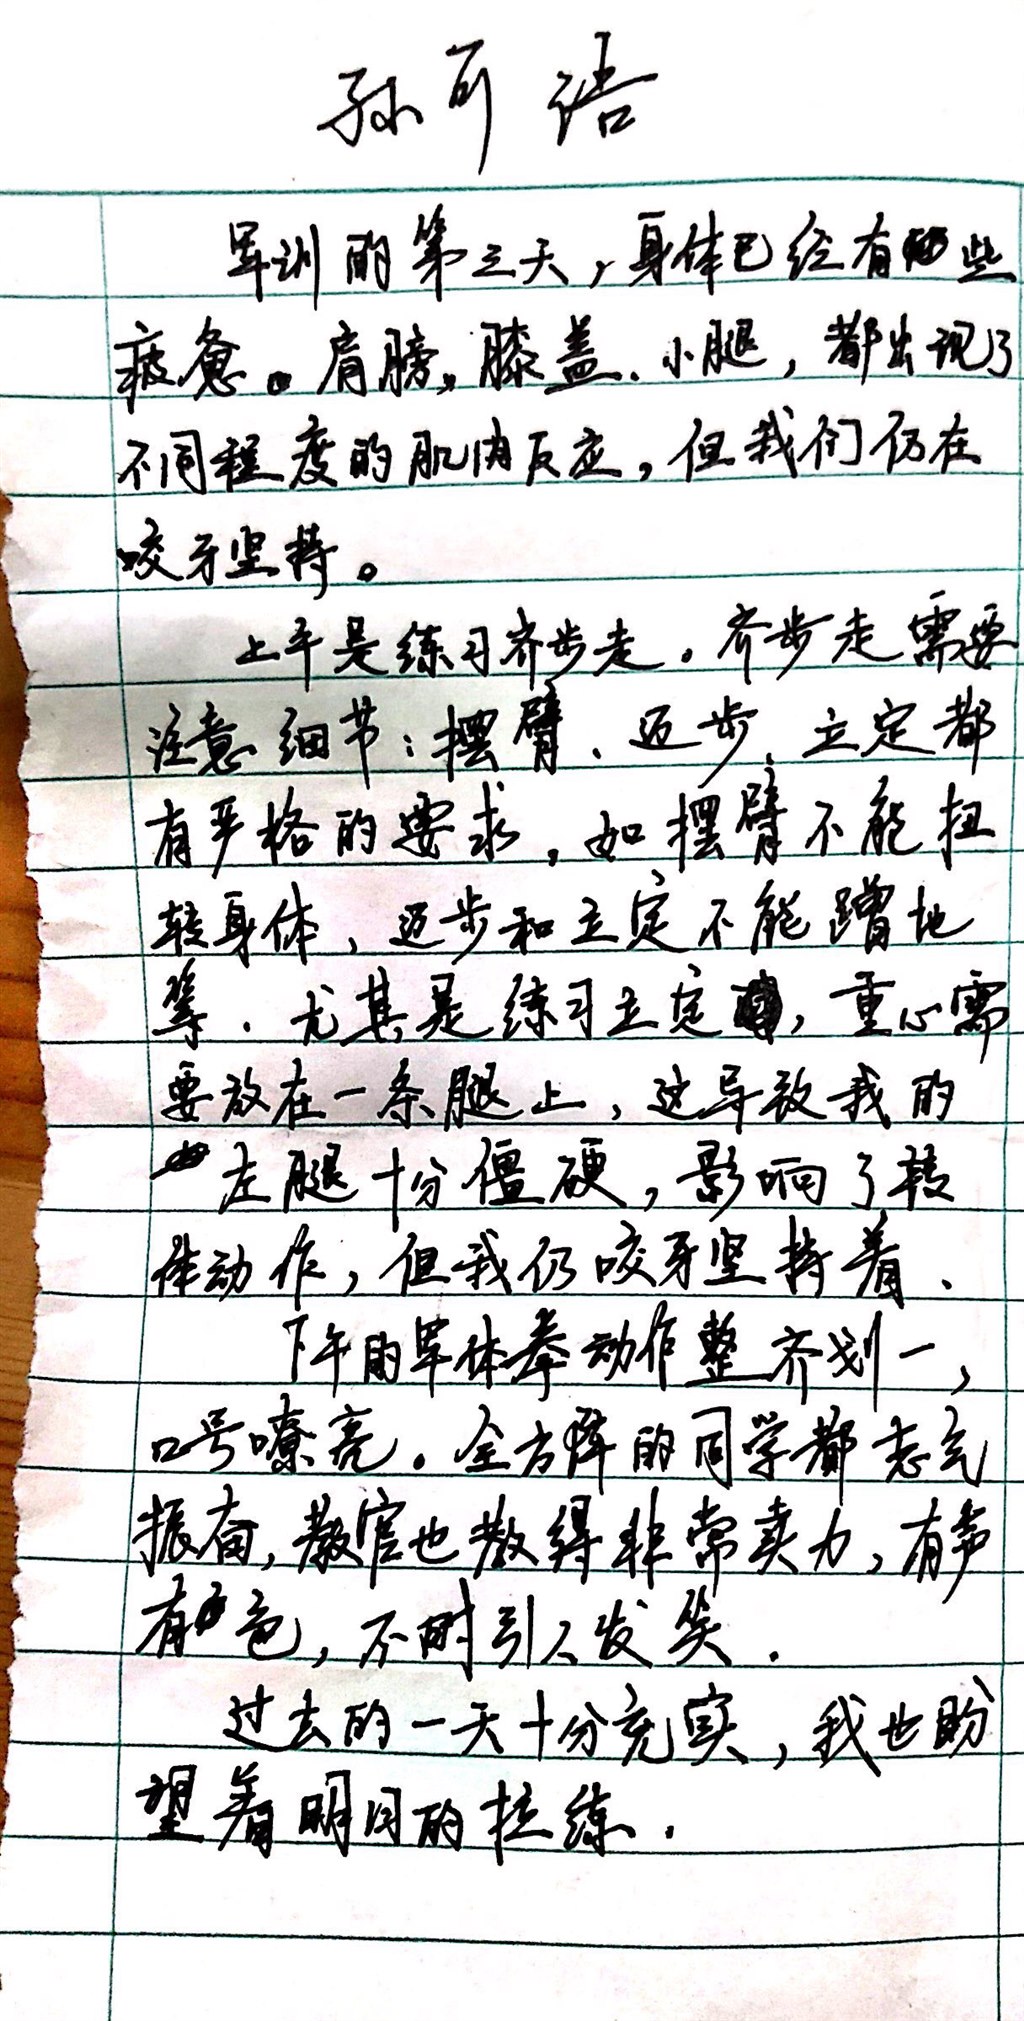 孙可语
军训的第三天，身体已经有些
疲惫。肩膀、膝盖、小腿，都出现了
不同程度的肌肉反应，但我们仍在
咬牙坚持。
上午是练习齐步走。齐步走需要
注意细节：摆臂、迈步、立定都
有严格的要求，如摆臂不能扭
转身体，迈步和立定不能蹭地
等．尤其是练习立定，重心需
要放在一条腿上，这导致我的
左腿十分僵硬，影响了转
体动作，但我仍咬牙坚持着．
下午的军体拳动作整齐划一，
口号嘹亮。全方阵的同学都志气
振奋，教官也教得非常卖力，有声
有色，不时引人发笑．
过去的一天十分充实，我也盼
望着明日的拉练．